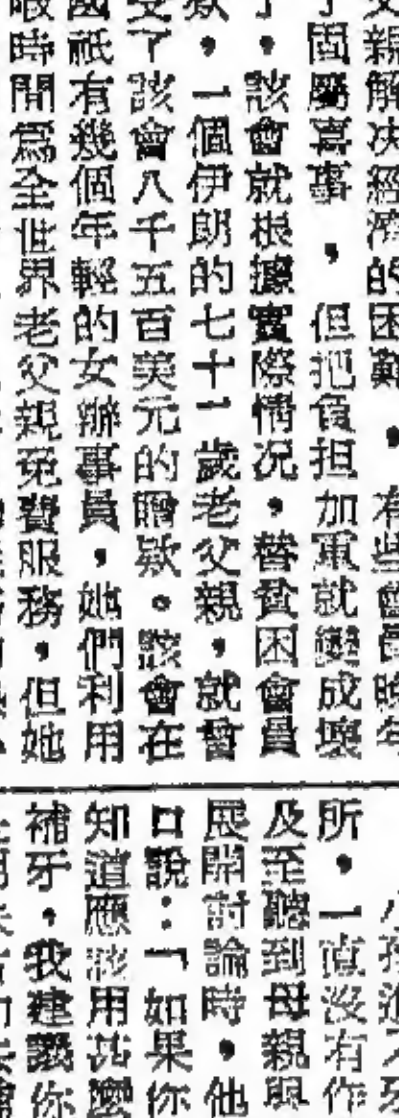 父親解决經濟的困難，有些會員晚年
了固屬喜事，但把負担加重就變成壞
了，該會就根據實際情况，替貧困會員
欵，一個伊朗的七十一歲老父親，就曾
受了該會八千五百美元的贈欵。該會在
國祇有幾個年輕的女辦事員，她們利用
暇時間爲全世界老父親免費服務，但她
所，一直没有作
及至聽到母親與
展開討論時，他
口說：「如果你
知道應該用甚麼
補牙，我建議你